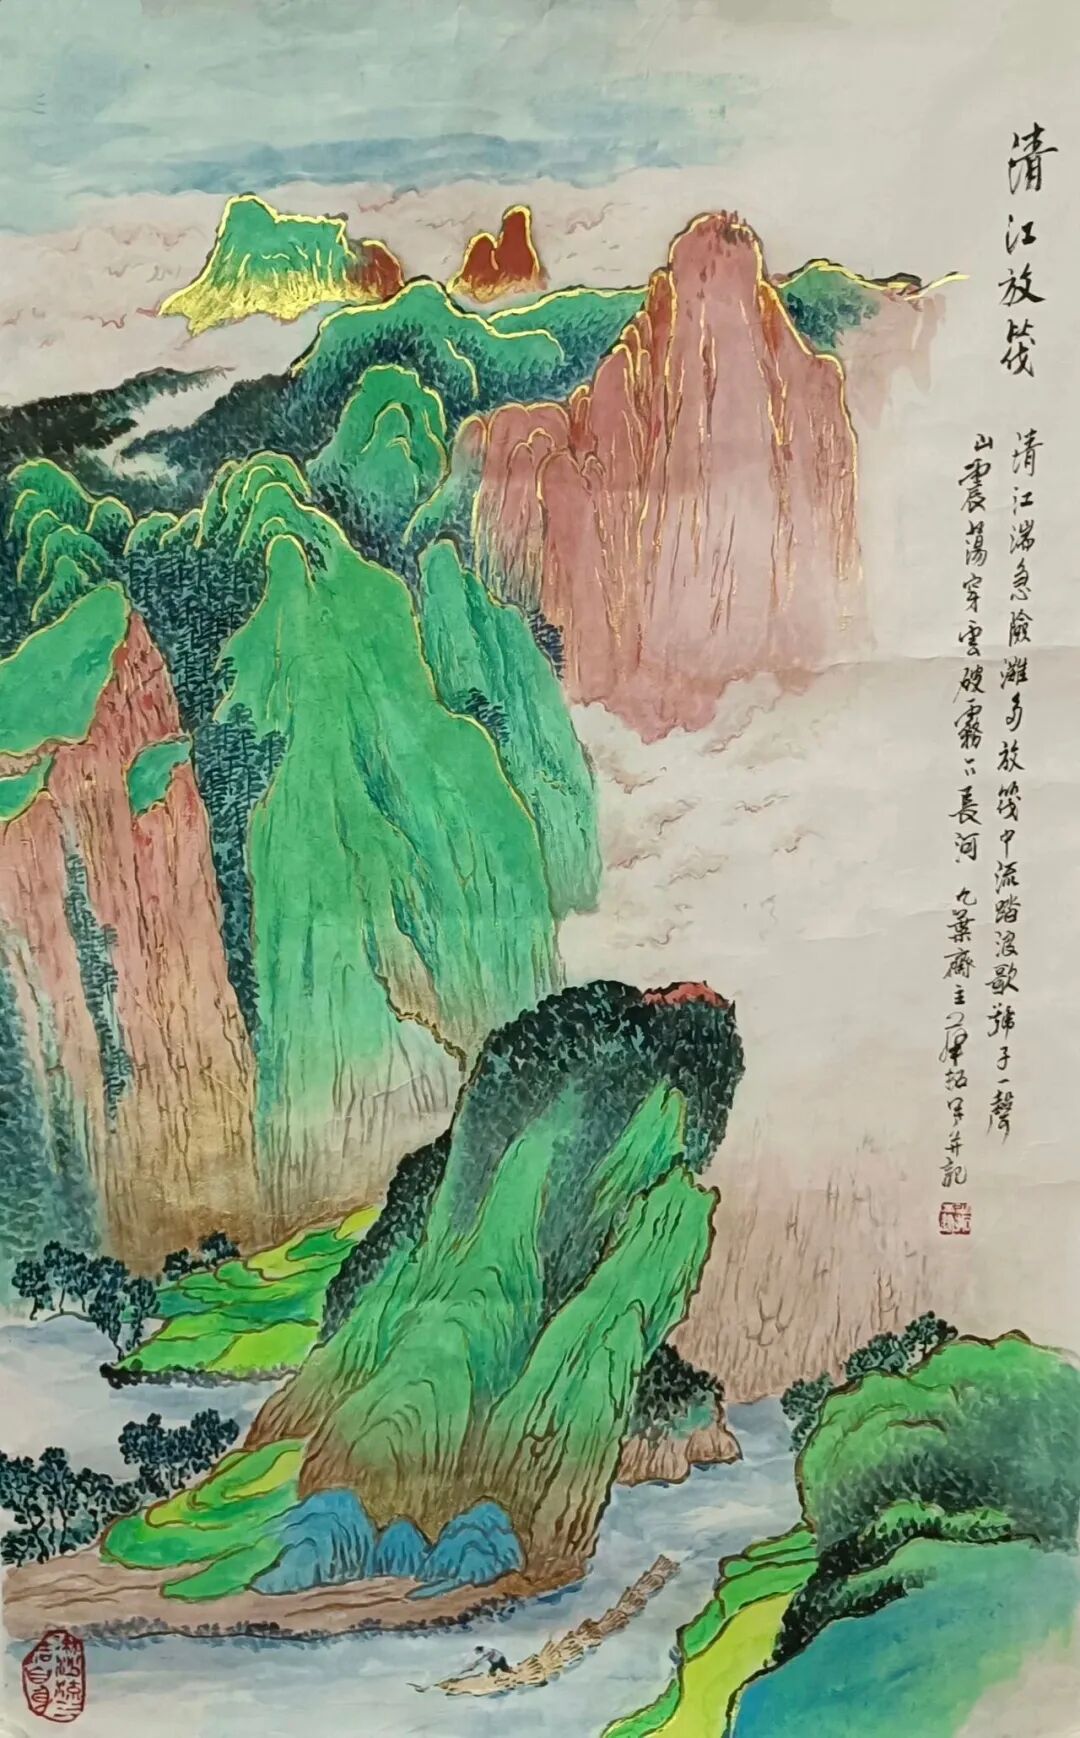 清江放筏
清江湍急險灘多放筏中流踏浪歌號子一聲
山震蕩穿雲破霧下長河 九葉齋主
并記